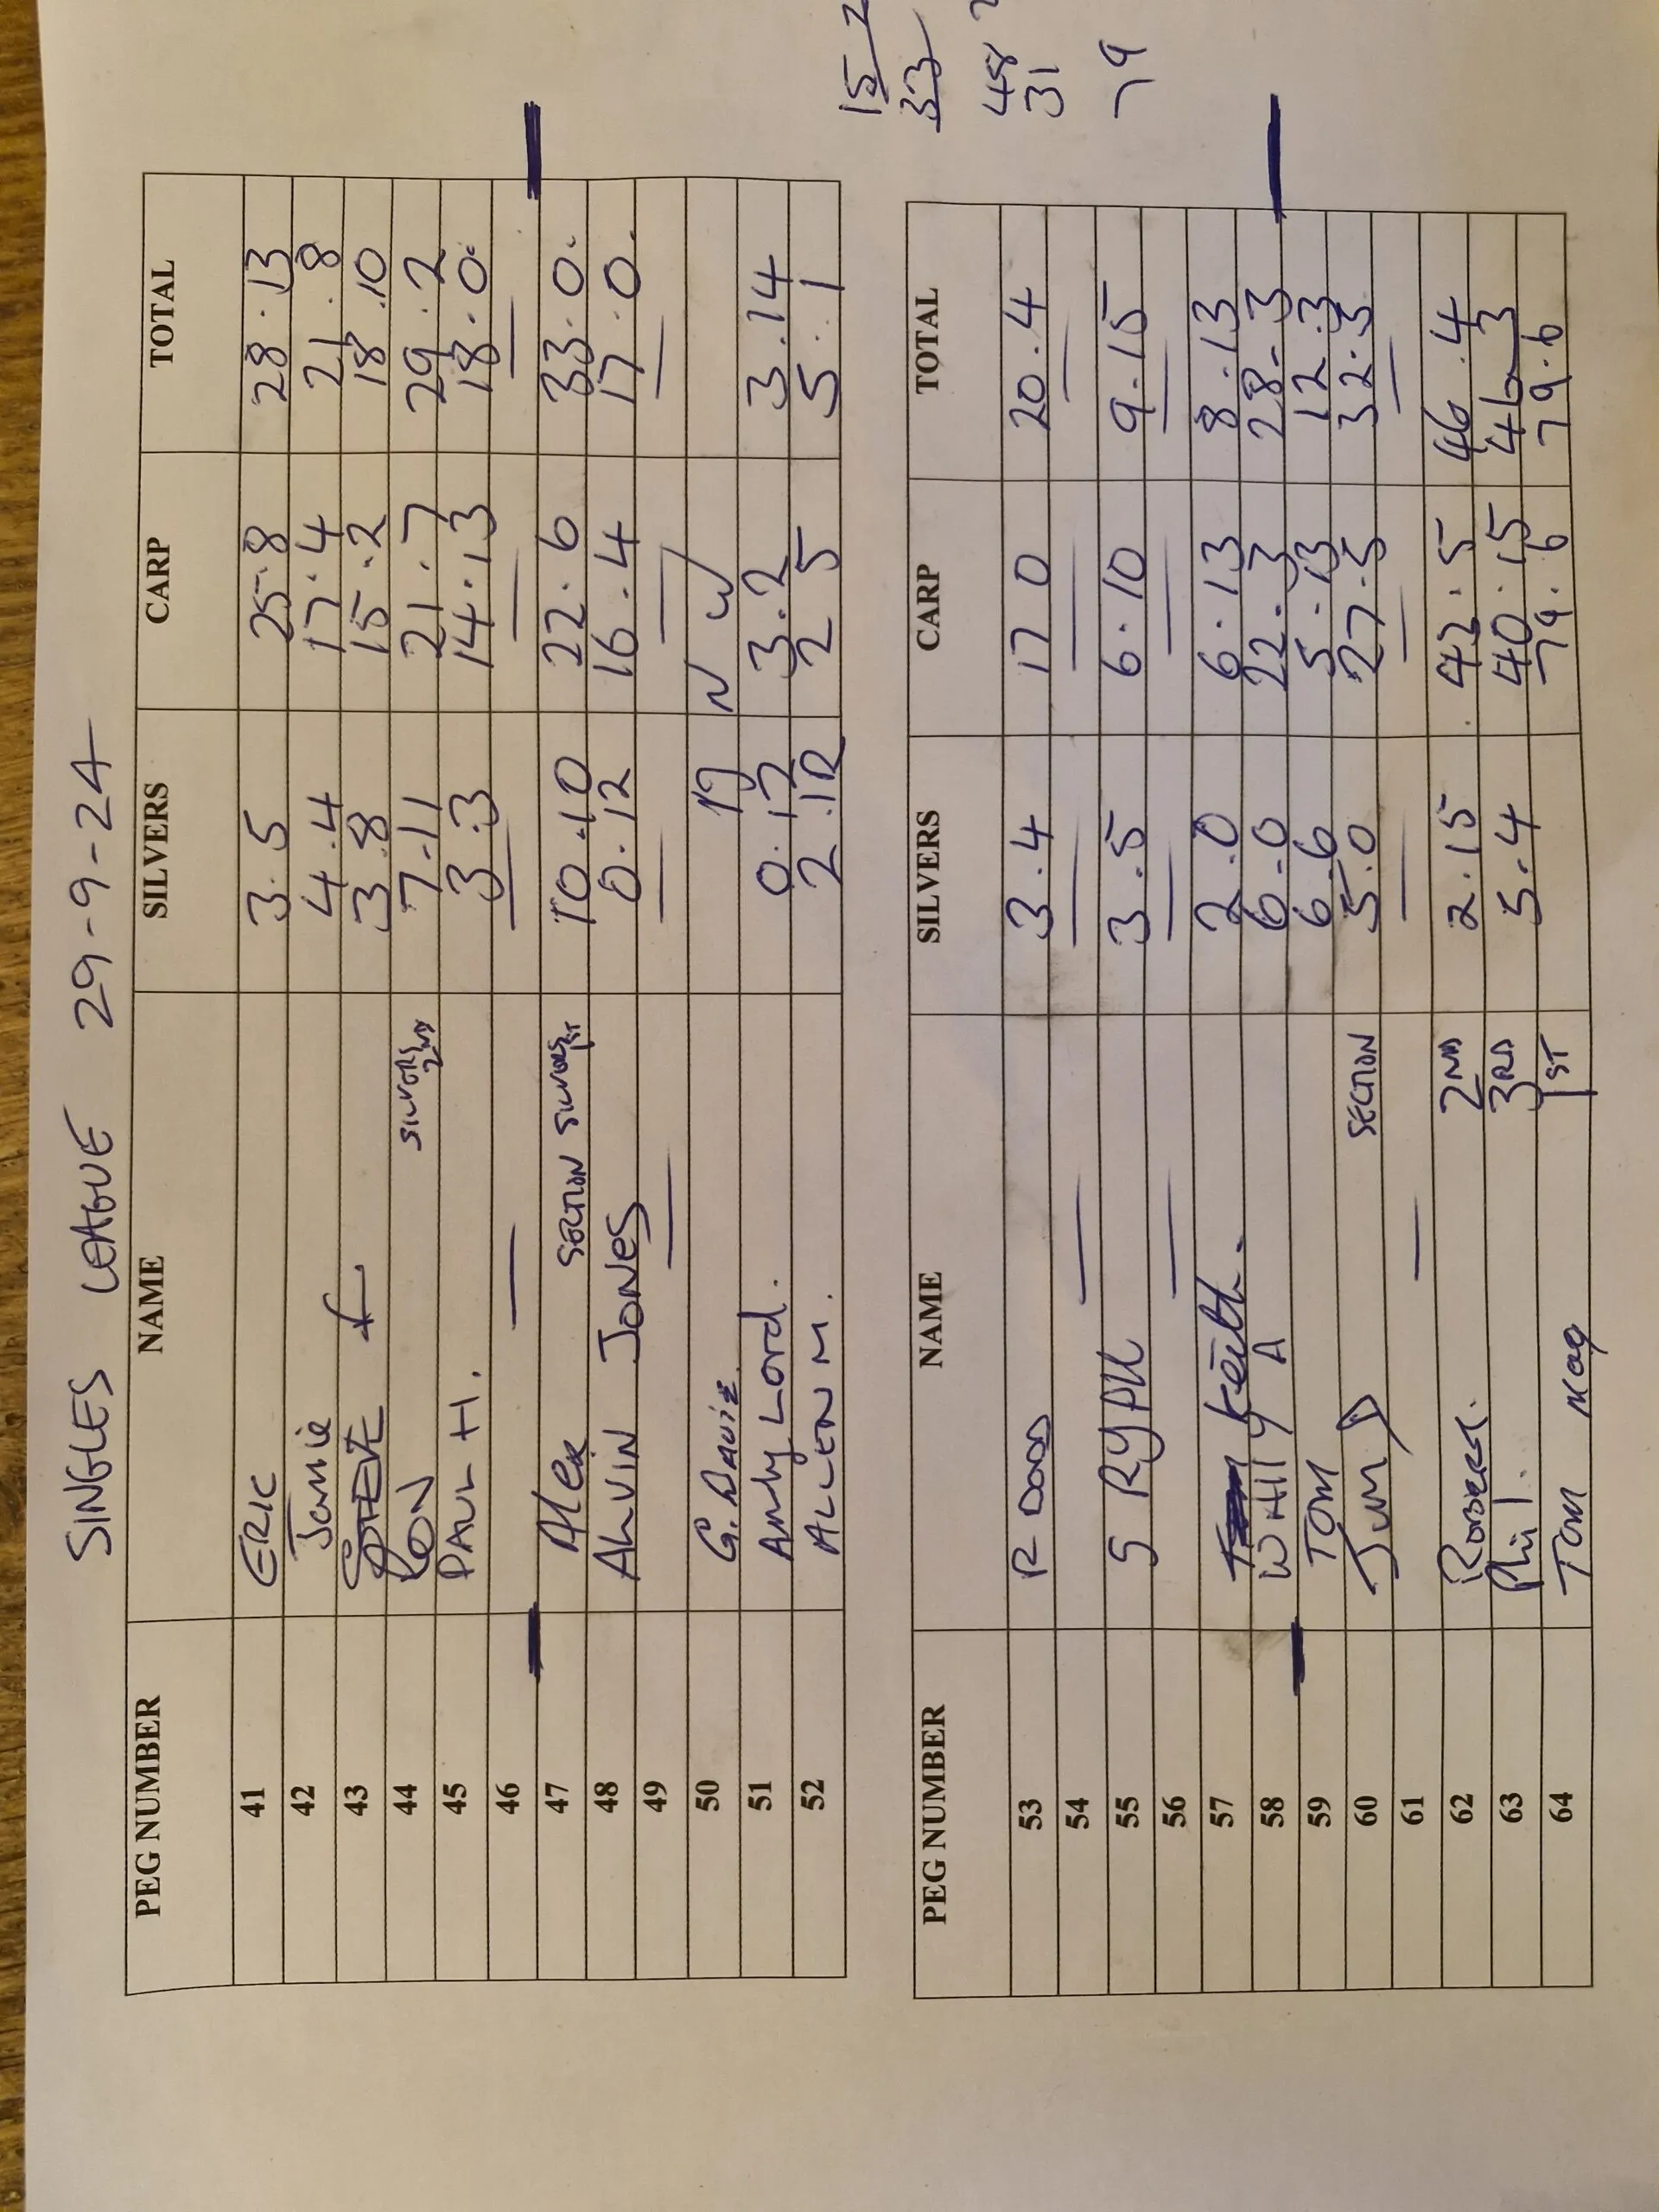 SINGLES LEAGUE 29-9-24
PEG NUMBER NAME SILVERS CARP TOTAL
41 ERIC 3.5 25.8 28.13
42 Jamie 4.4 17.4 21.8
43 STEVE 3.8 15.2 18.10
44 RON SILVERS 2ND 7.11 21.7 29.2
45 PAUL H. 3.3 14.13 18.0.
46 — — — —
47 Alex SECTION SILVERS 1ST 10.10 22.6 33.0.
48 ALVIN JONES 0.12 16.4 17.0.
49 — — — —
50 G. Davis N W
51 Andy Lord. 0.12 3.2 3.14
52 ALLEN M. 2.12 2 5 5.1
PEG NUMBER NAME SILVERS CARP TOTAL
53 R DODD 3.4 17 0 20.4
54 — — — —
55 S 3.5 6.10 9.15
56 — — — —
57 Keith. 2.0 6.13 8.13
58 WALLY A 6.0 22.3 28.3
59 TOM 6.6 5.13 12.3
60 SECTION 5.0 27.3 32.3
61 — — — —
62 Robert. 2ND 2.15 42.5 46.4
63 Phil. 3RD 5.4 40.15 46.3
64 Tom 1ST 79.6 79.6
15 2
33
48
31
79